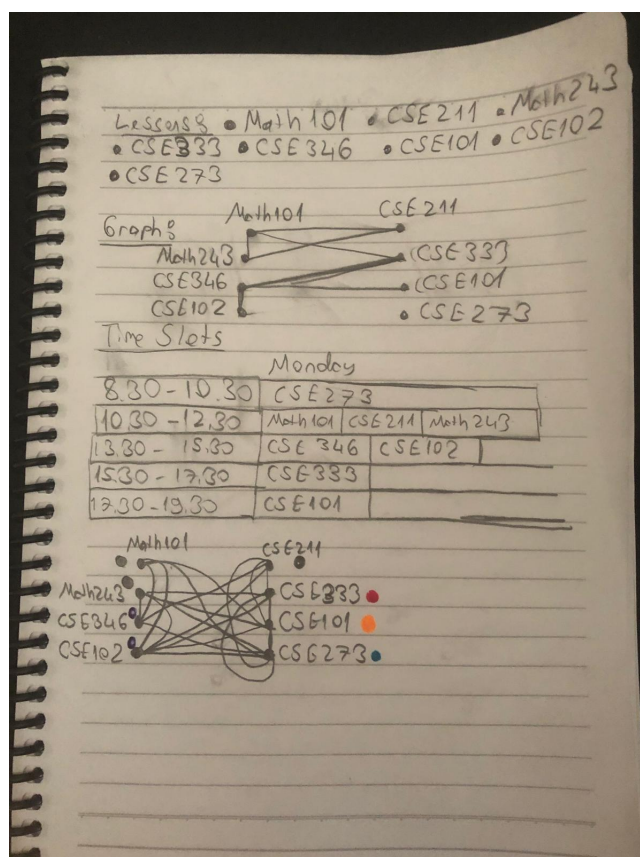 Lessons: • Math101 • CSE211 • Math243
• CSE333 • CSE346 • CSE101 • CSE102
• CSE273
Math101 CSE211
Graph:
Math243 CSE333
CSE346 CSE101
CSE102 • CSE273
Time Slots
Monday
8.30-10.30 CSE273
10.30-12.30 Math101 CSE211 Math243
13.30-15.30 CSE346 CSE102
15.30-17.30 CSE333
17.30-19.30 CSE101
Math101 CSE211
Math243 CSE333
CSE346 CSE101
CSE102 CSE273